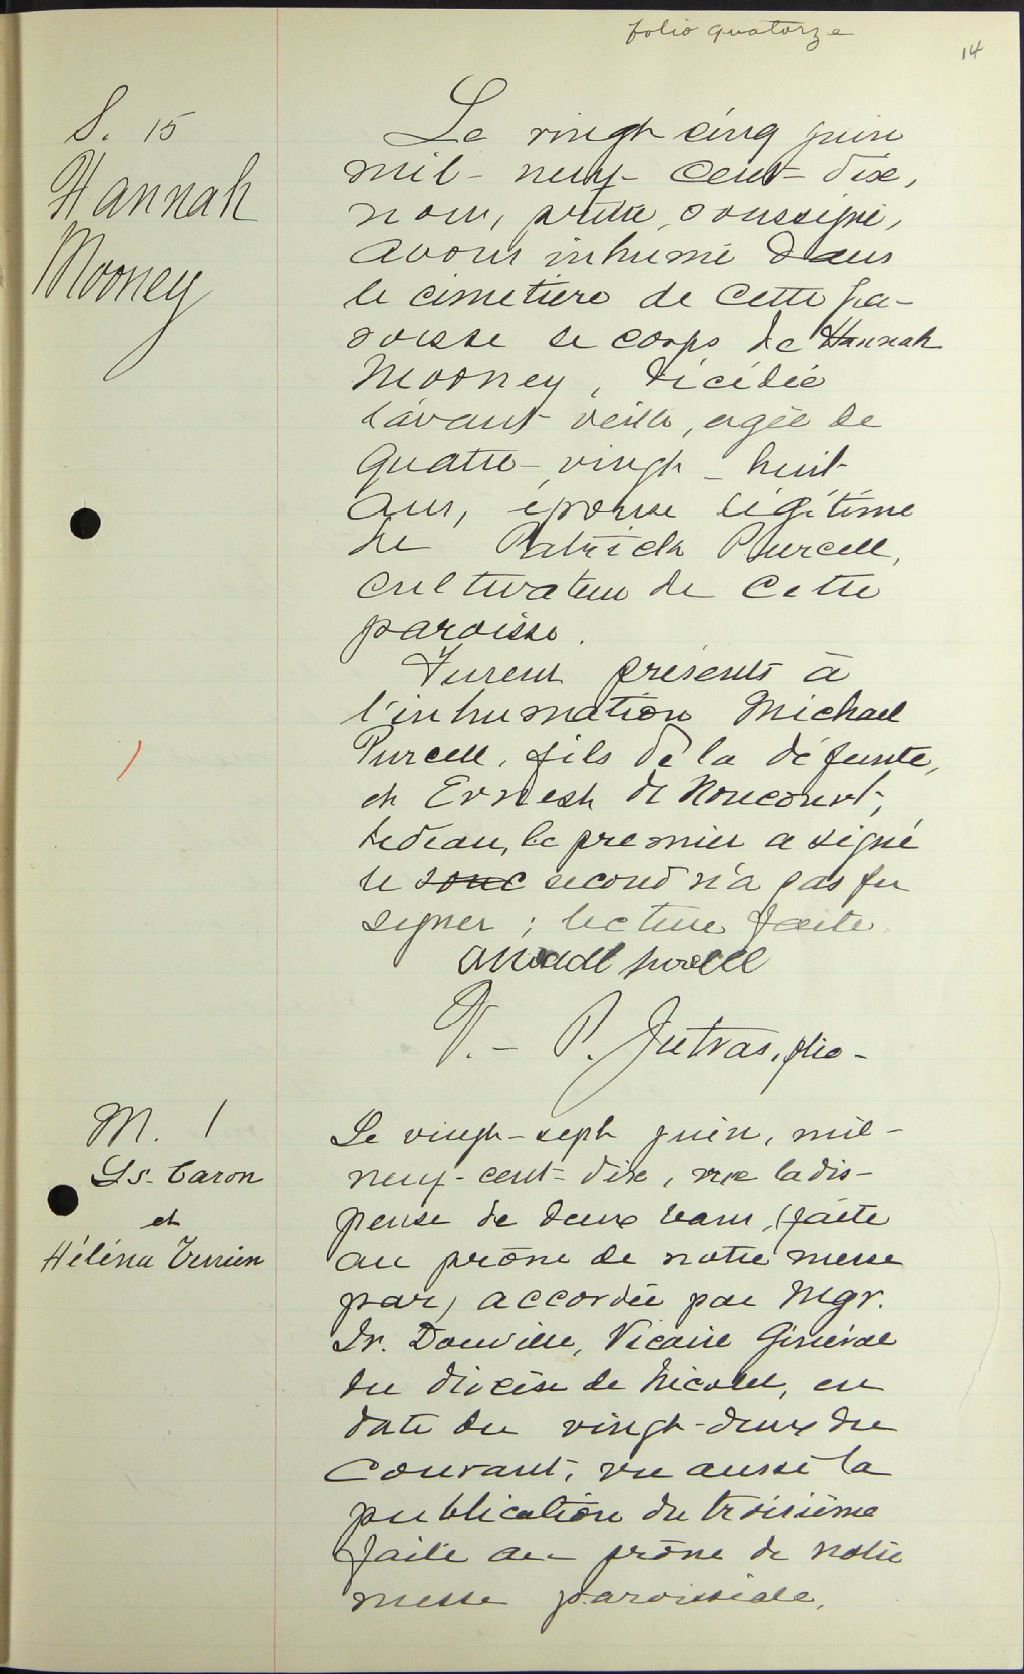 folio quatorze
14
S. 15
Hannah
Mooney
Le vingt cinq juin
mil-neuf-cent-dix,
nous, prêtre, soussigné,
avons inhumé dans
le cimetière de cette pa-
roisse le corps de Hannah
Mooney, décédée
l'avant veille, agée de
quatre-vingt-huit
ans, épouse légitime
de Patrick Purcell,
cultivateur de cette
paroisse.
Furent présents à
l'inhumation Michael
Purcell, fils de la défunte,
et Ernest de Noncourt,
bedeau, le premier a signé
le second n'a pas pu
signer; lecture faite.
V.-P. Jutras, ptre-
M. 1
Ls. Caron
et
Héléna Terrien
Le vingt-sept juin, mil-
neuf-cent-dix, vu la dis-
pense de deux bans, (faite
au prône de notre messe
par) accordée par Mgr.
Ir. Douville, Vicaire Général
du diocèse de Nicolet, en
date du vingt-deux du
courant, vu aussi la
publication du troisième
faite au prône de notre
messe paroissiale,